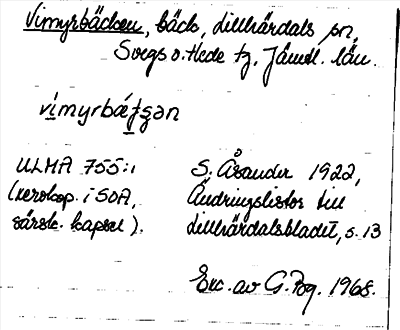 Vimyrbäcken, bäck, Lillhärdals sn,
Svegs o. Hede tg. Jämtl. län.
vi̲myrbæʈʂən
ULMA 755:1 S. Åsander 1922,
(xerokop. i SOA, Ändringslistor till
särsk. kapsel). Lillhärdalsbladet, s. 13
Exc. av G. Pog. 1968.